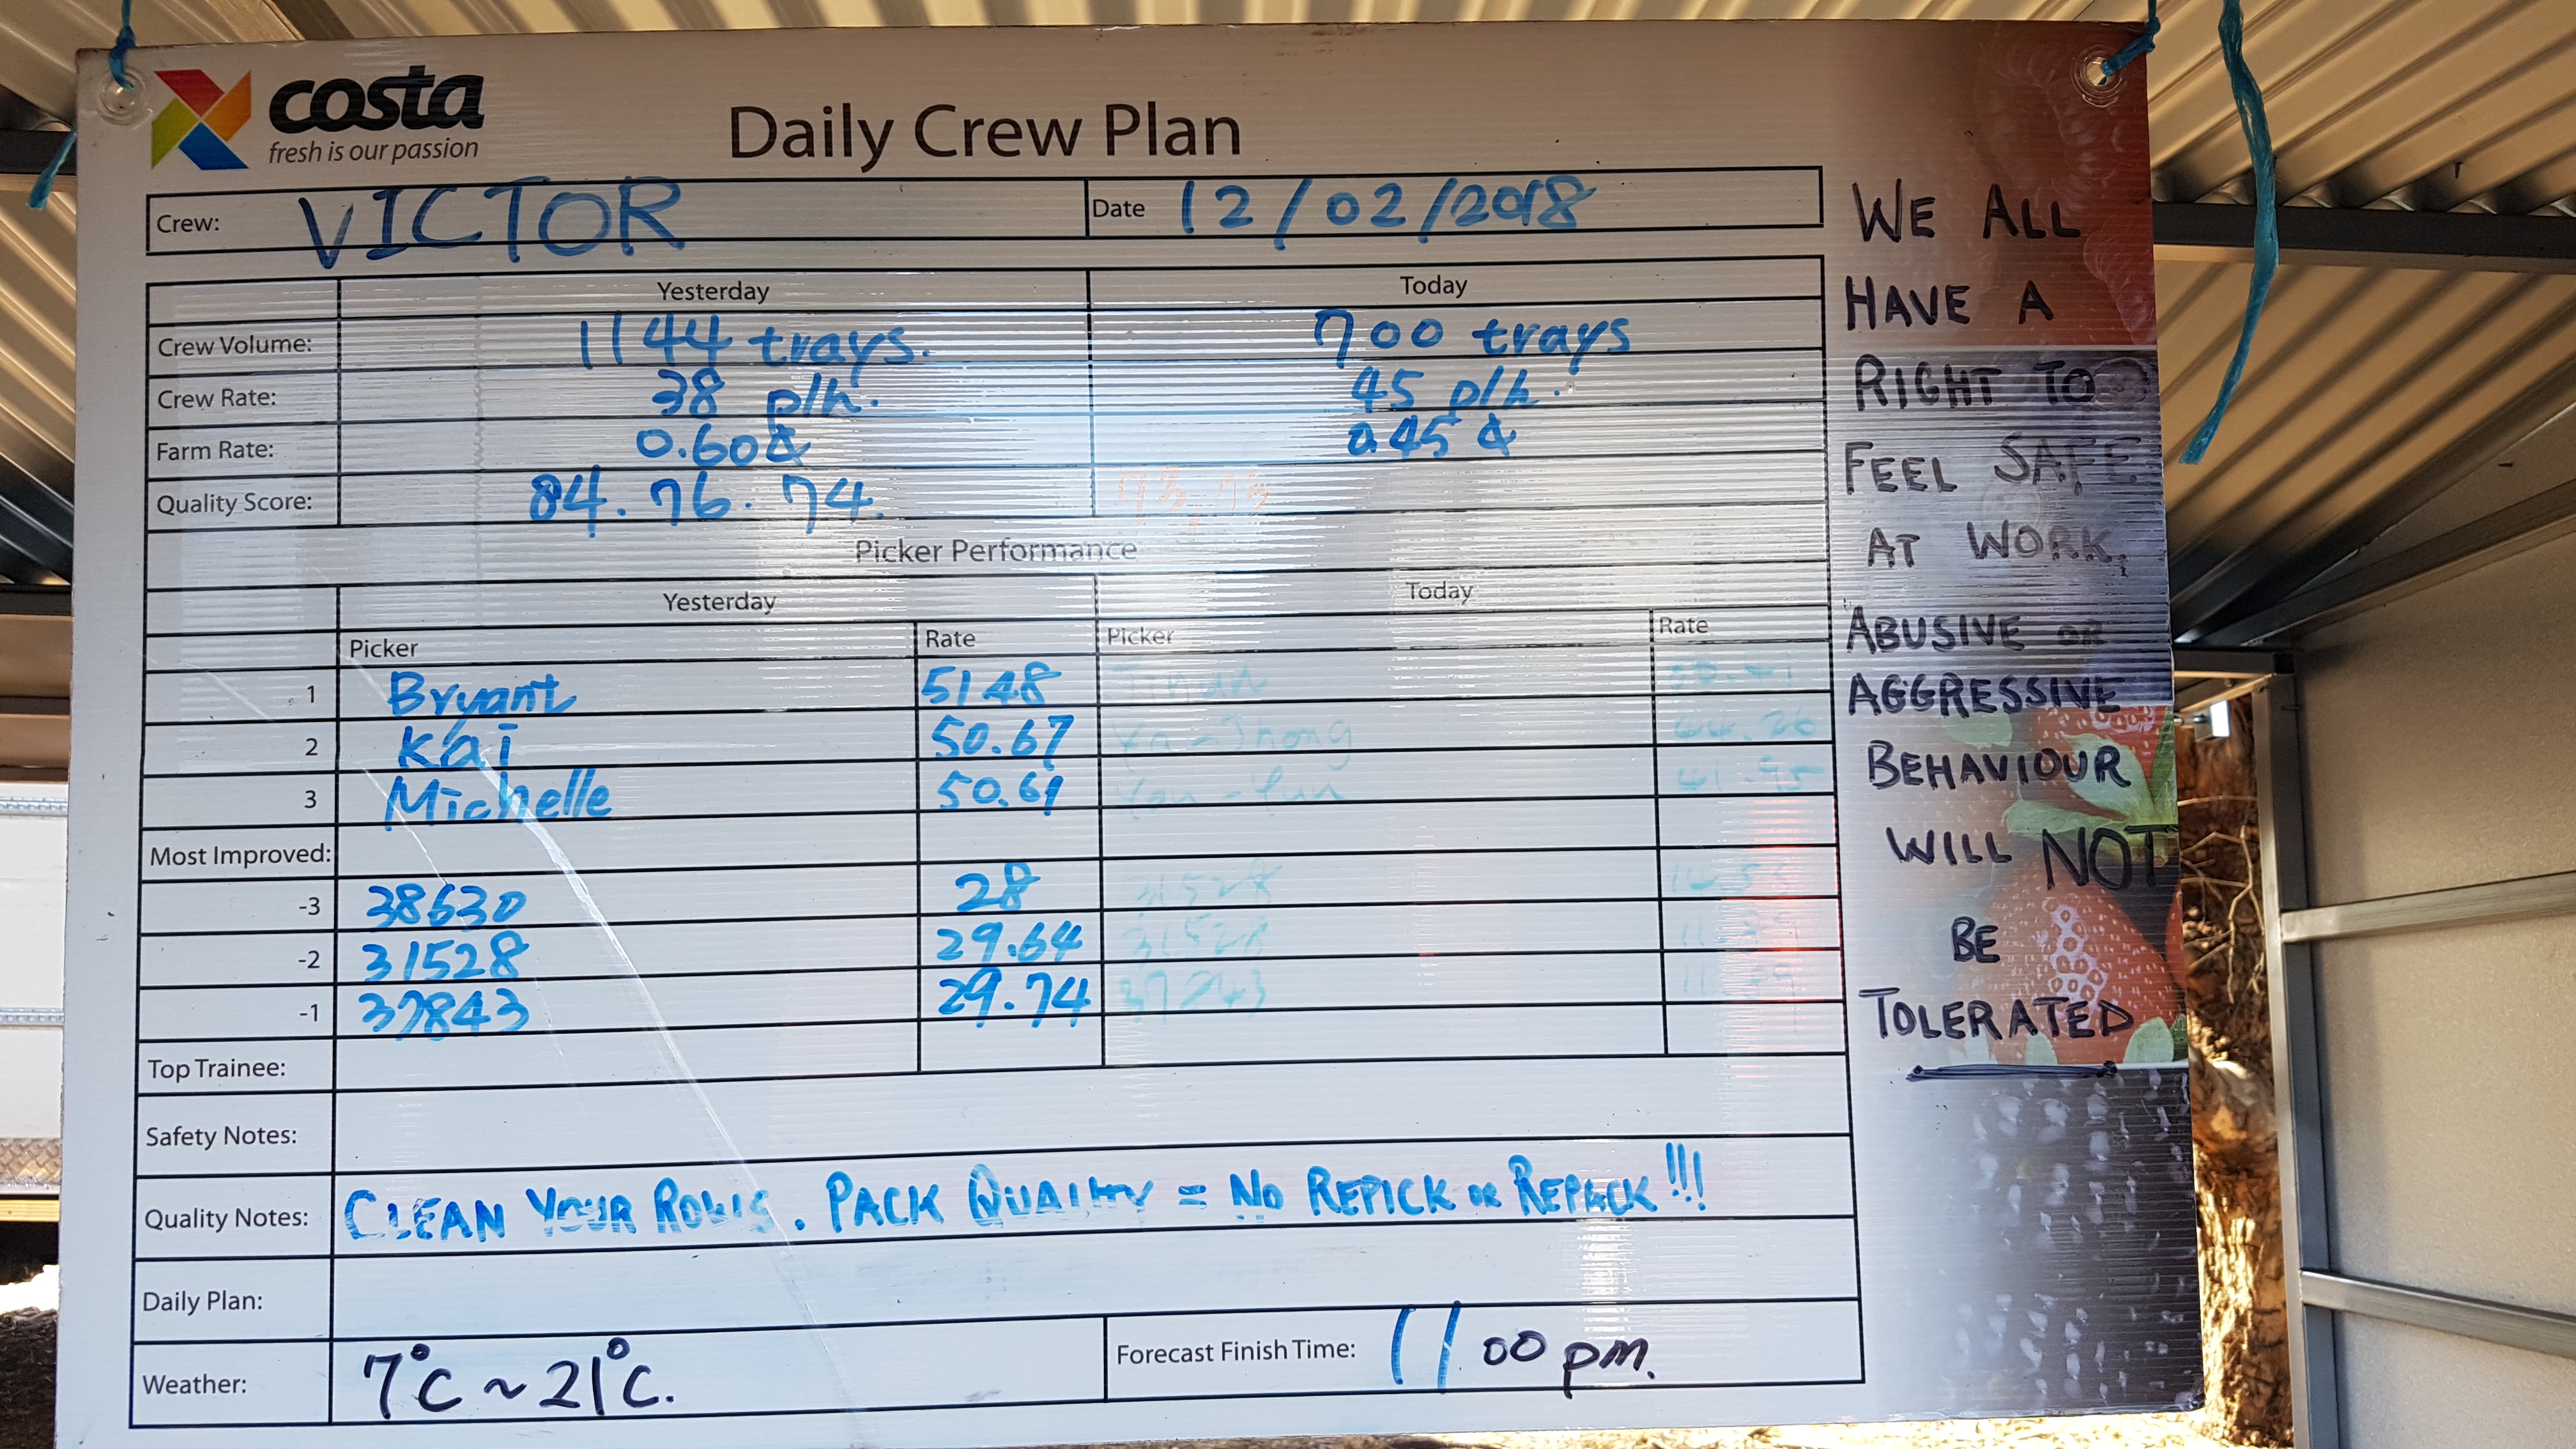 costa
fresh is our passion
Daily Crew Plan
Crew: VICTOR Date 12/02/2018
Yesterday Today
Crew Volume: 1144 trays. 700 trays
Crew Rate: 38 p/h. 45 p/h.
Farm Rate: 0.60 0.45
Quality Score: 84. 76. 74. 73,73
Picker Performance
Yesterday Today
Picker Rate Picker Rate
1 Bryant 51.48
2 Kai 50.67 Ya-Jhong 44.26
3 Michelle 50.61 You-Yun 41.95
Most Improved:
-3 38630 28 31528
-2 31528 29.64
-1 37843 29.74
Top Trainee:
Safety Notes:
Quality Notes: CLEAN YOUR ROWS. PACK QUALITY = NO REPICK OR REPACK!!!
Daily Plan:
Weather: 7°C ~ 21°C. Forecast Finish Time: 1/ 00 pm.
WE ALL
HAVE A
RIGHT TO
FEEL SAFE
AT WORK.
ABUSIVE OR
AGGRESSIVE
BEHAVIOUR
WILL NOT
BE
TOLERATED